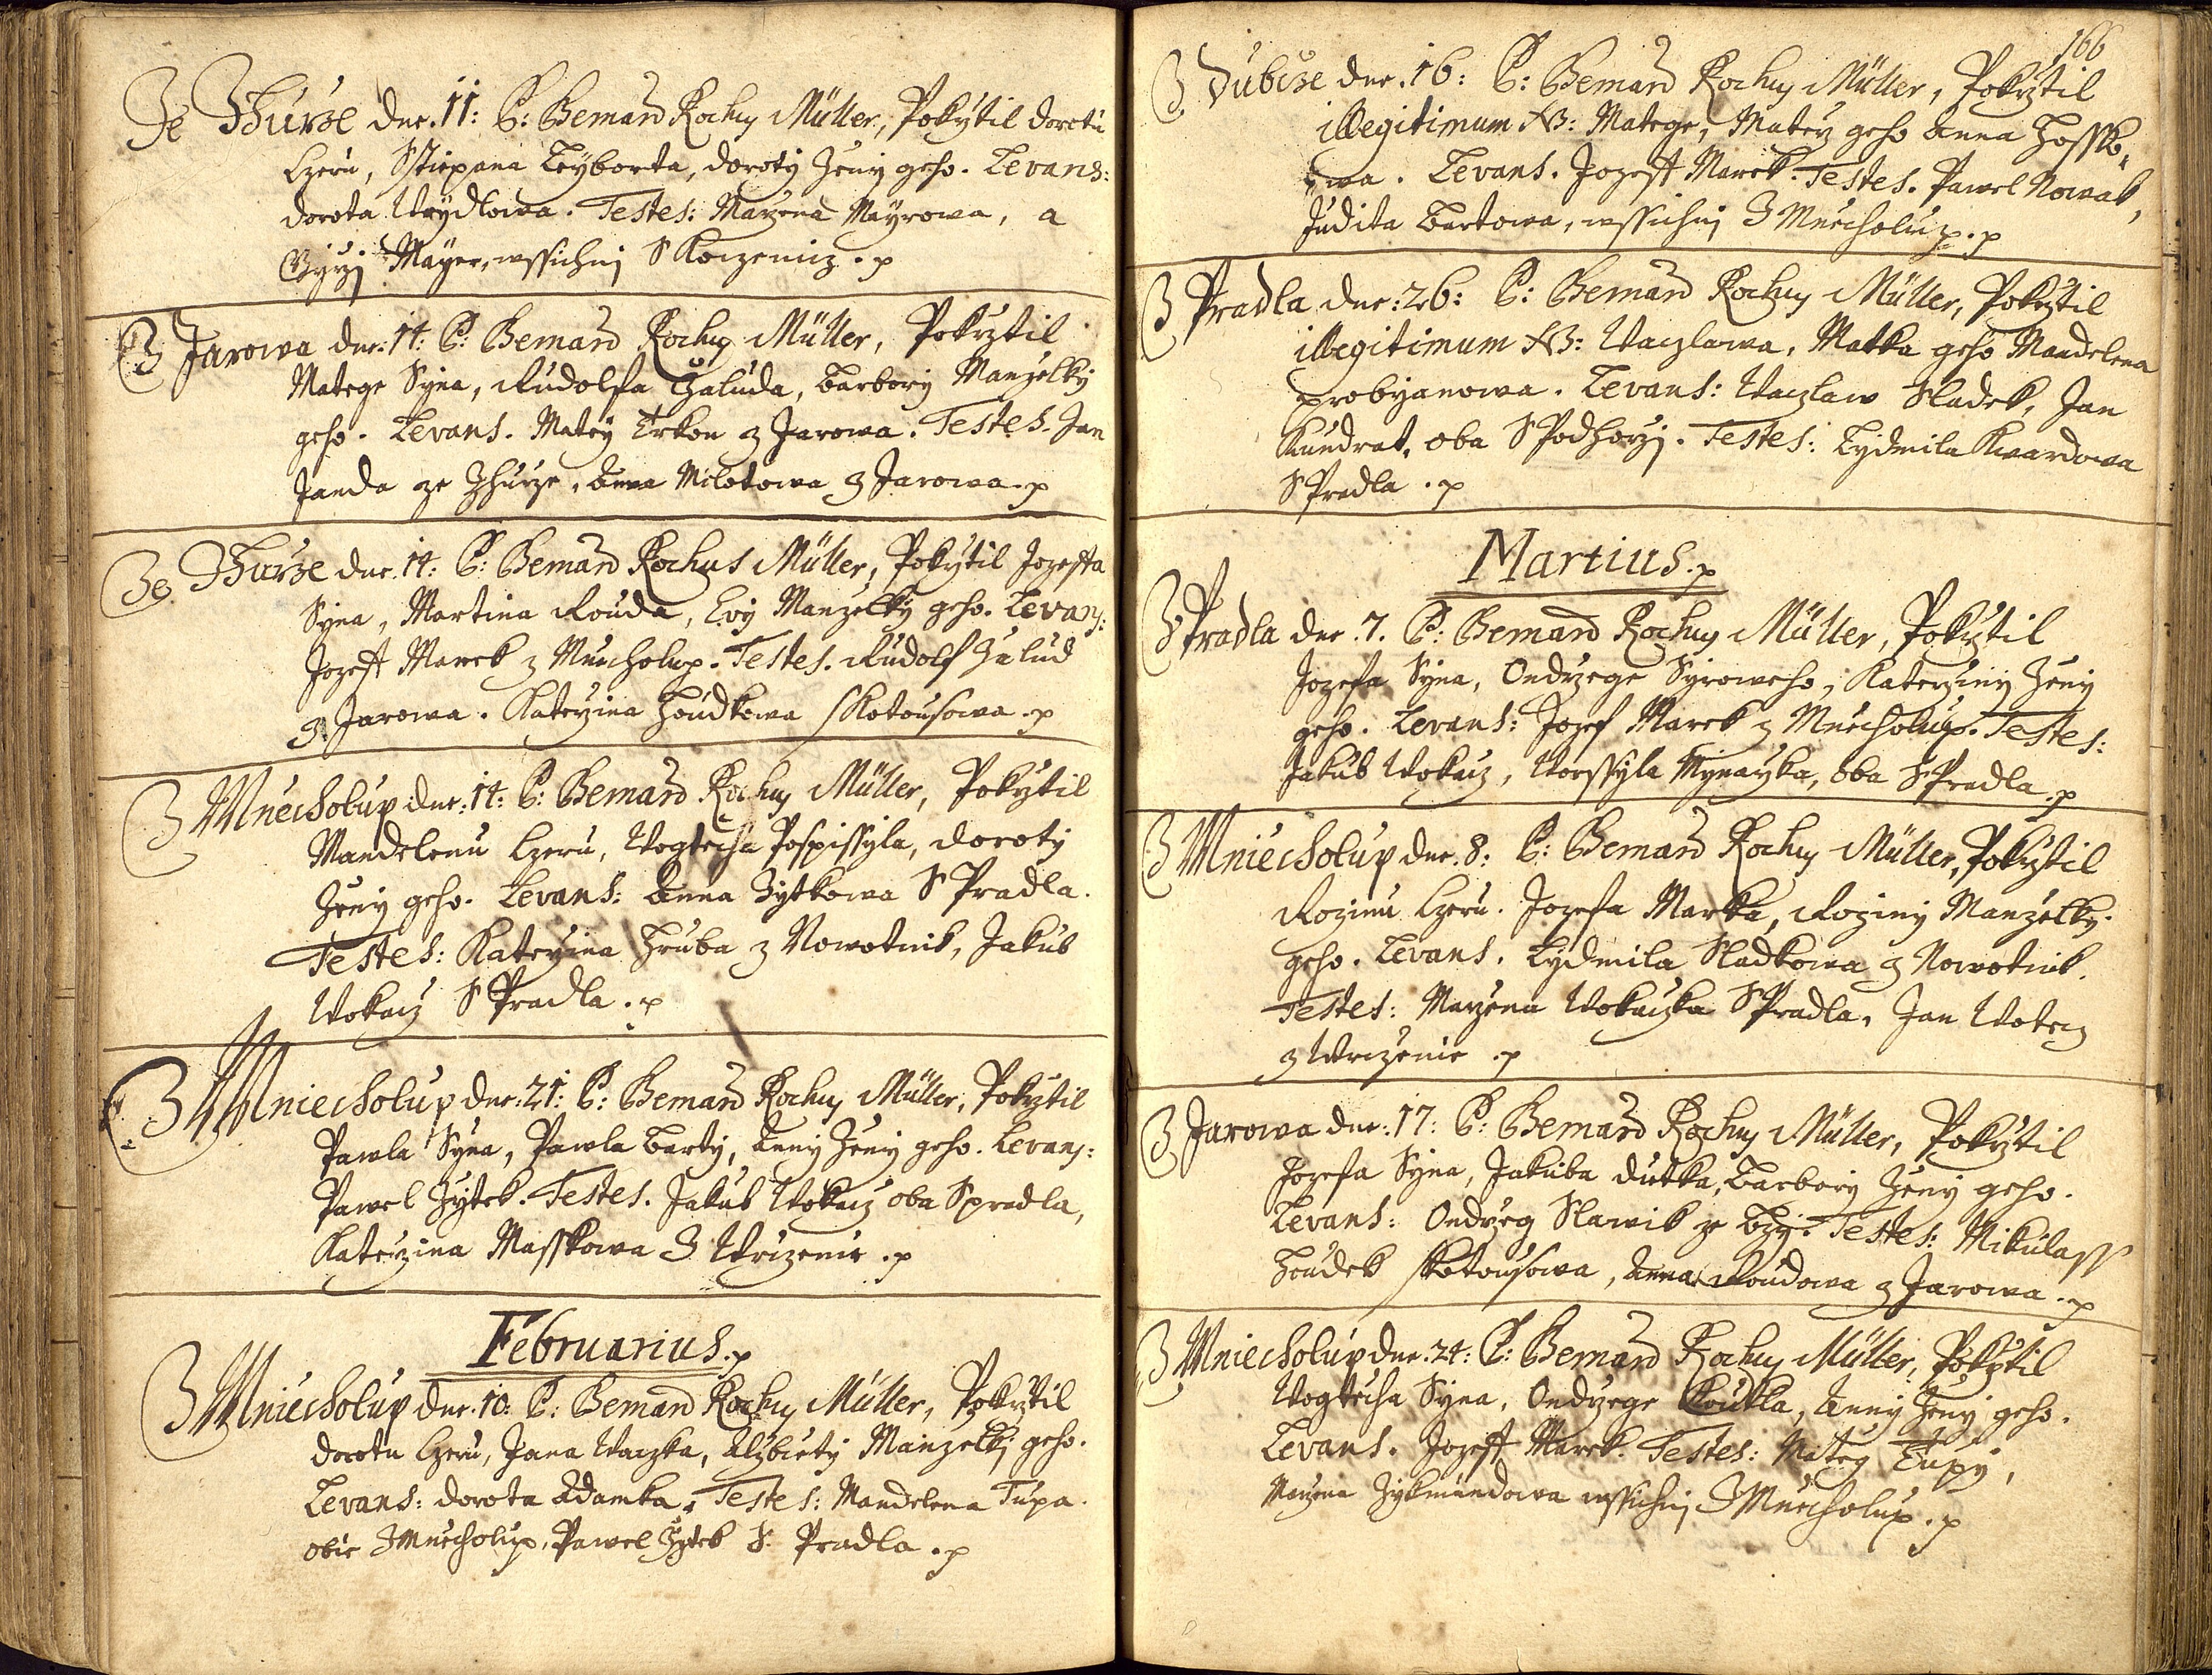 Ze Zhurze dne. 11: P: Bernard Rochus Müller, Pokrztil dorotu
Czeru, Sstiepana Leyborta, doroty Ženy geho. Levans:
dorota Weydlowa. Testes: Marzena Mayrowa, a
Girzj Mayer, wssichnj S Kokzeniz. p
Z Jarowa dne: 14: P: Bernard Rochus Müller, Pokrztil
Matege Syna, Rudolfa Žaluda, Barbory Manželky
geho. Levans. Matey Trkou z Jarowa. Testes. Jan
Janda ze Zhurze, Anna Milotowa z Jarowa. p
Ze Zhurze dne. 14: P: Bernard Rochus Müller, Pokrztil Jozeffa
Syna, Martina Roudа, Evy Manželky geho. Levans:
Jozeff Marek z Mniecholup. Testes. Rudolf Žalud
z Jarowa. Katerzina Houdkowa Skotousowa. p
Z Mniecholup dne: 14: P: Bernard Rochus Müller, Pokrztil
Mandelenu Czeru, Wogtecha Pospissyla, doroty
Ženy geho. Levans: Anna Žytkowa S Pradla.
Testes: Katerzina Hruba z Nowotnik, Jakub
Wokacz S Pradla. p
Z Mniecholup dne: 21: P: Bernard Rochus Müller, Pokrztil
Pawla Syna, Pawla Barty, Anny Ženy geho. Levans:
Pawel Žytek. Testes. Jakub Wokacz oba S pradla,
Katerzina Masskowa Z Wrczenie. p
Februarius. p
Z Mniecholup dne. 10: P: Bernard Rochus Müller, Pokrztil
dorotu Czeru, Jana Waczka, Alzbiety Manzelkj geho.
Levans: dorota Adamka, Testes: Mandelena Tupa.
obie Z Mniecholup, Pawel Žytek S: Pradla. p
166
Z Dubcze dne. 16: P: Bernard Rochus Müller, Pokrztil
illegitimum NB: Matege, Matery geho Anna Hossko„
„wa. Levans. Jozeff Marek. Testes. Pawel Nowak,
Judita Bartowa, wssichnj Z Mniecholup. p
Z Pradla dne: 26: P: Bernard Rochus Müller, Pokrztil
illegitimum NB: Waczlawa, Matka geho Mandelena
probyanowa. Levans: Waczlaw Sladek, Jan
Kundrat, oba S Podhorzj. Testes: Lydmila Kwardowa
S Pradla. p
Martius. p
Z Pradla dne. 7. P: Bernard Rochus Müller, Pokrztil
Jozefa Syna, Ondrzege Syroweho, Katerziny Ženy
geho. Levans: Jozef Marek z Mniecholup. Testes:
Jakub Wokacz, Worssyla Mynarzka, oba S Pradla. p
Z Mniecholup dne. 8: P: Bernard Rochus Müller, Pokrztil
Rozinu Czeru. Jozefa Marka, Roziny Manzelky
geho. Levans. Lydmila Sladkowa z Nowotnik.
Testes: Marzena Wokaczka S Pradla, Jan Wotecz
z Wrczenie. p
Z Jarowa dne: 17: P: Bernard Rochus Müller, Pokrztil
Jozefa Syna, Jakuba dutka, Barbory Ženy geho.
Levans: Ondrzeg Slawik ze Lzj. Testes: Mikulass
Houdek Skotousowa, Anna Roudowa z Jarowa. p
Z Mniecholup dne. 24: P: Bernard Rochus Müller, Pokrztil
Wogtecha Syna, Ondrzege Koukla, Anny Ženy geho.
Levans. Jozeff Marek. Testes: Mateg Tupy,
Marzena Zykmundowa wssichnj Z Mniecholup. p